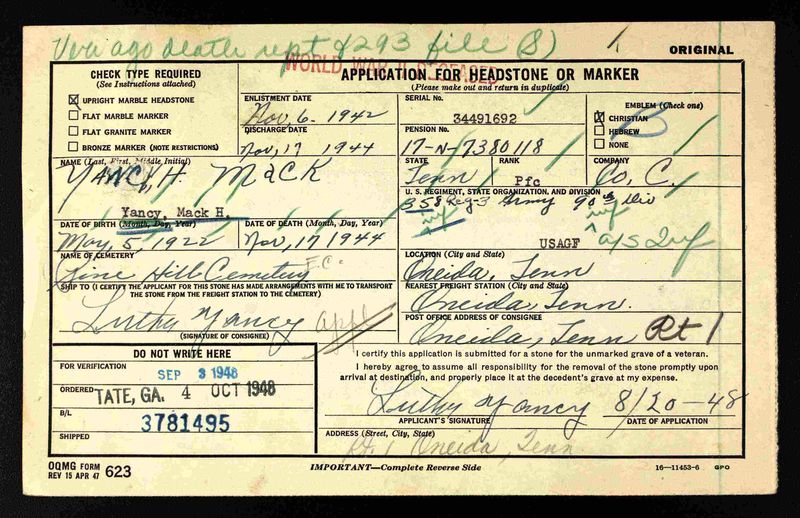 ago death rept & 293 file (S) 1
ORIGINAL
WORLD WAR II DECEASED
CHECK TYPE REQUIRED
(See Instructions attached)
☒ UPRIGHT MARBLE HEADSTONE
☐ FLAT MARBLE MARKER
☐ FLAT GRANITE MARKER
☐ BRONZE MARKER (NOTE RESTRICTIONS)
APPLICATION FOR HEADSTONE OR MARKER
(Please make out and return in duplicate)
ENLISTMENT DATE
Nov, 6- 1942
DISCHARGE DATE
Nov, 17 1944
SERIAL No.
34491692
PENSION No.
17-N-7380118
EMBLEM (Check one)
☒ CHRISTIAN
☐ HEBREW
☐ NONE
NAME (Last, First, Middle Initial)
YANCY, H. MACK
Yancy, Mack H.
STATE
Tenn
RANK
Pfc
COMPANY
Co, C.
U. S. REGIMENT, STATE ORGANIZATION, AND DIVISION
358 Reg-3 Army 90th Div
inf inf
USAGF a/s Inf
DATE OF BIRTH (Month, Day, Year)
May, 5, 1922
DATE OF DEATH (Month, Day, Year)
Nov, 17 1944
NAME OF CEMETERY
Pine Hill Cemetery E.C.
LOCATION (City and State)
Oneida, Tenn
SHIP TO (I CERTIFY THE APPLICANT FOR THIS STONE HAS MADE ARRANGEMENTS WITH ME TO TRANSPORT
THE STONE FROM THE FREIGHT STATION TO THE CEMETERY)
Luther Yancy appl
(SIGNATURE OF CONSIGNEE)
NEAREST FREIGHT STATION (City and State)
Oneida, Tenn.
POST OFFICE ADDRESS OF CONSIGNEE
Oneida, Tenn Rt 1
DO NOT WRITE HERE
FOR VERIFICATION
SEP 3 1948
ORDERED
TATE, GA. 4 OCT 1948
B/L
3781495
SHIPPED
I certify this application is submitted for a stone for the unmarked grave of a veteran.
I hereby agree to assume all responsibility for the removal of the stone promptly upon
arrival at destination, and properly place it at the decedent's grave at my expense.
Luther Yancy 8/20-48
APPLICANT'S SIGNATURE
DATE OF APPLICATION
ADDRESS (Street, City, State)
Rt. 1 Oneida, Tenn
OQMG FORM
REV 15 APR 47 623
IMPORTANT—Complete Reverse Side
16—11453-6 GPO